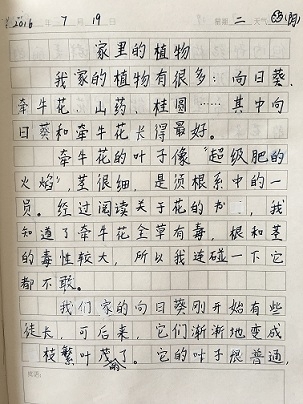 2016年7月19日 星期二 天气
家里的植物
我家的植物有很多：向日葵、
牵牛花、山药、桂圆……其中向
日葵和牵牛花长得最好。
牵牛花的叶子像“超级肥的
火焰”，茎很细，是须根系中的一
员。经过阅读关于花的书，我
知道了牵牛花全草有毒，根和茎
的毒性较大，所以我连碰一下它
都不敢。
我们家的向日葵刚开始有些
徒长，可后来，它们渐渐地变成
枝繁叶茂了。它的叶子很普通，